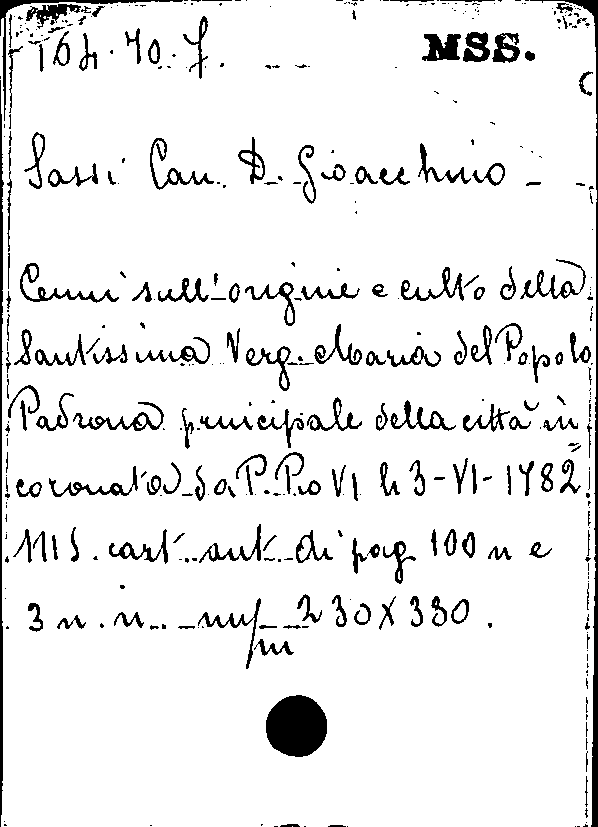 164.70.7. MSS.
Sassi Can. D. Gioacchino -
Cenni sull'origine e culto della
Santissima Verg. Maria del Popolo
Padrona principale della città in=
coronata da P. Pio VI li 3-VI-1782.
MS. cart. aut. di pag 100 n e
3 n. n. m/m 230X330.